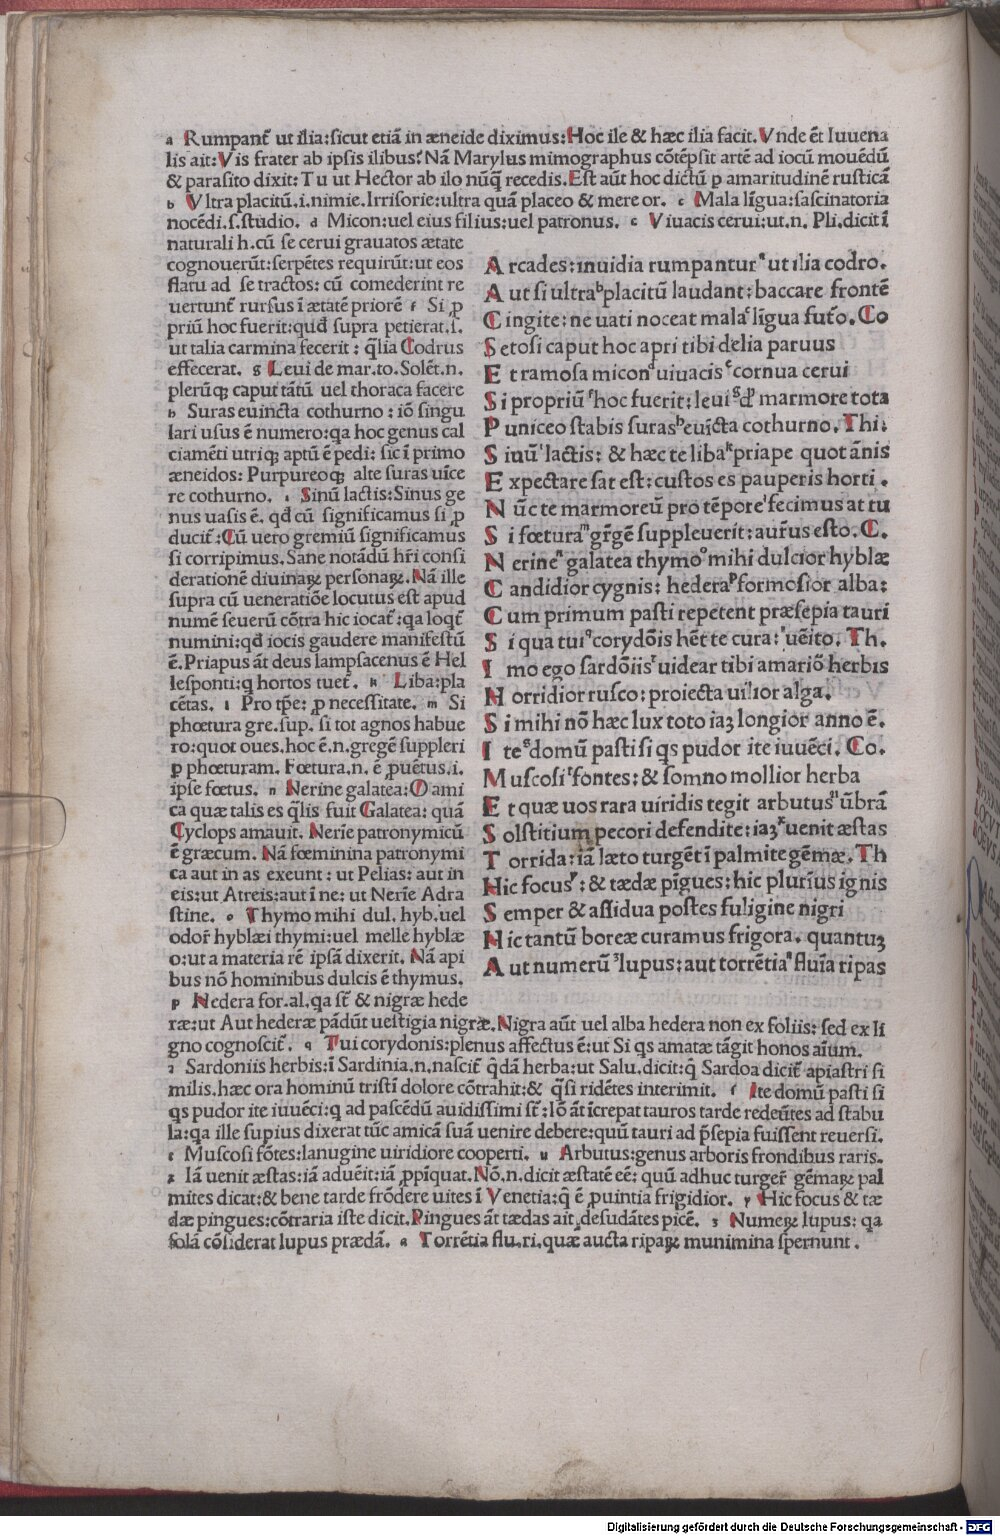 a Rumpant᷑ ut ilia:sicut etiã in æneide diximus:Hoc ile & hæc ilia facit.Vnde ẽt Iuuena
lis ait:Vis frater ab ipsis ilibus? Nã Marylus mimographus cõtẽpsit artẽ ad iocũ mouẽdũ
& parasito dixit: Tu ut Hector ab ilo nũq̃ recedis.Est aũt hoc dictũ p amaritudinẽ rusticã
b Vltra placitũ.i.nimie.Irrisorie:ultra quã placeo & mere or. c Mala lĩgua:fascinatoria
nocẽdi.s.studio. d Micon:uel eius filius:uel patronus. e Viuacis cerui:ut.n. Pli.dicit ĩ
naturali h.cũ se cerui grauatos ætate
cognouerũt:serpẽtes requirũt:ut eos
flatu ad se tractos: cũ comederint re
uertunt᷑ rursus ĩ ætatẽ priorẽ f Si ꝓ
priũ hoc fuerit:quđ supra petierat.s.
ut talia carmina fecerit : q̃lia Codrus
effecerat. g Leui de mar.to.Solẽt.n.
plerũq; caput tãtũ uel thoraca facere
h Suras euincta cothurno : iõ singu
lari usus ẽ numero:qa hoc genus cal
ciamẽti utriq; aptũ ẽ pedi: sic ĩ primo
æneidos: Purpureoq; alte suras uĩce
re cothurno. i Sinũ lactis:Sinus ge
nus uasis ẽ. qđ cũ significamus si ꝓ
ducit᷑:Cũ uero gremiũ significamus
si corripimus.Sane notãdũ hr̃i consi
derationẽ diuinaꝝ personaꝝ.Nã ille
supra cũ ueneratiõe locutus est apud
numẽ seuerũ cõtra hic iocat᷑:qa loqt᷑
numini:qđ iocis gaudere manifestũ
ẽ.Priapus ãt deus lampsacenus ẽ Hel
lesponti:q hortos tuet᷑. k Liba:pla
cẽtas. l Pro tp̃e: ꝓ necessitate. m Si
phœtura gre.sup. si tot agnos habue
ro:quot oues.hoc ẽ.n.gregẽ suppleri
ꝑ phœturam. Fœtura.n. ẽ ꝓuẽtus.i.
ipse fœtus. n Nerine galatea:O ami
ca quæ talis es q̃lis fuit Galatea: quã
Cyclops amauit. Nerĩe patronymicũ
ẽ græcum. Nã fœminina patronymi
ca aut in as exeunt : ut Pelias: aut in
eis:ut Atreis:aut ĩ ne: ut Nerĩe Adra
stine. o Thymo mihi dul. hyb.uel
odor᷑ hyblæi thymi:uel melle hyblæ
o:ut a materia rẽ ipsã dixerit. Nã api
bus nõ hominibus dulcis ẽ thymus.
p Hedera for.al.qa st᷑ & nigræ hede
Arcades:inuidia rumpanturᵃ ut ilia codro.
Aut si ultraᵇplacitũ laudant:baccare frontẽ
Cingite: ne uati noceat malaᶜ lĩgua fut᷑o. Co
Setosi caput hoc apri tibi delia paruus
Et ramosa miconᵈuiuacisᵉcornua cerui
Si propriũᶠhoc fuerit:leuiᵍđ marmore tota
Puniceo stabis surasʰeuĩcta cothurno. Thi.
Sinũⁱlactis: & hæc te libaᵏpriape quot ãnis
Expectare sat est: custos es pauperis horti .
Nũc te marmoreũ pro tẽporeˡfecimus at tu
Si fœturaᵐgr̃gẽ suppleuerit:aur᷑us esto. C.
Nerineⁿgalatea thymoᵒmihi dulcior hyblæ
Candidior cygnis: hederaᵖformosior alba:
Cum primum pasti repetent præsepia tauri
Si qua tui corydõis hẽt te cura: uẽito. Th.
Imo ego sardõiisʳuidear tibi amariõ herbis
Horridior rusco: proiecta uilior alga.
Si mihi nõ hæc lux toto iaꝫ longior anno ẽ.
Iteˢdomũ pasti si qs pudor ite iuuẽci. Co.
Muscosiᵗfontes:& somno mollior herba
Et quæ uos rara uiridis tegit arbutusᵘũbrã
Solstitium pecori defendite:iaꝫˣuenit æstas
Torrida:iã læto turgẽt ĩ palmite gẽmæ. Th
Hic focusʸ: & tædæ pĩgues: hic plurĩus ignis
Semper & assidua postes fuligine nigri
Hic tantũ boreæ curamus frigora. quantuꝫ
Aut numerũᶻlupus:aut torrẽtiaᵃfluĩa ripas
ræ:ut Aut hederæ pãdũt uestigia nigræ.Nigra aũt uel alba hedera non ex foliis: sed ex li
gno cognoscit᷑. q Tui corydonis:plenus affectus ẽ:ut Si qs amatæ tãgit honos aĩum.
r Sardoniis herbis:ĩ Sardinia.n.nascit᷑ q̃dã herba:ut Salu.dicit:q̃ Sardoa dicit᷑ apiastri si
milis.hæc ora hominũ tristi dolore cõtrahit:& q̃si ridẽtes interimit. s Ite domũ pasti si
qs pudor ite iuuẽci:q ad pascẽdũ auidissimi st᷑:Iõ ãt ĩcrepat tauros tarde redeũtes ad stabu
la:qa ille supius dixerat tũc amicã suã uenire debere:quũ tauri ad p̃sepia fuissent reuersi.
t Muscosi fõtes:lanugine uiridiore cooperti. u Arbutus:genus arboris frondibus raris.
x Iã uenit æstas:iã aduẽit:iã ꝓpĩquat.Nõ.n.dicit æstatẽ eẽ: quũ adhuc turger᷑ gẽmaꝝ pal
mites dicat:& bene tarde frõdere uites ĩ Venetia:q̃ ẽ ꝓuintia frigidior. y Hic focus & tæ
dæ pingues:cõtraria iste dicit.Pingues ãt tædas ait desudãtes picẽ. z Numeꝝ lupus: qa
solã cõsiderat lupus prædã. a Torrẽtia flu.ri.quæ aucta ripaꝝ munimina spernunt .
Digitalisierung gefördert durch die Deutsche Forschungsgemeinschaft - DFG